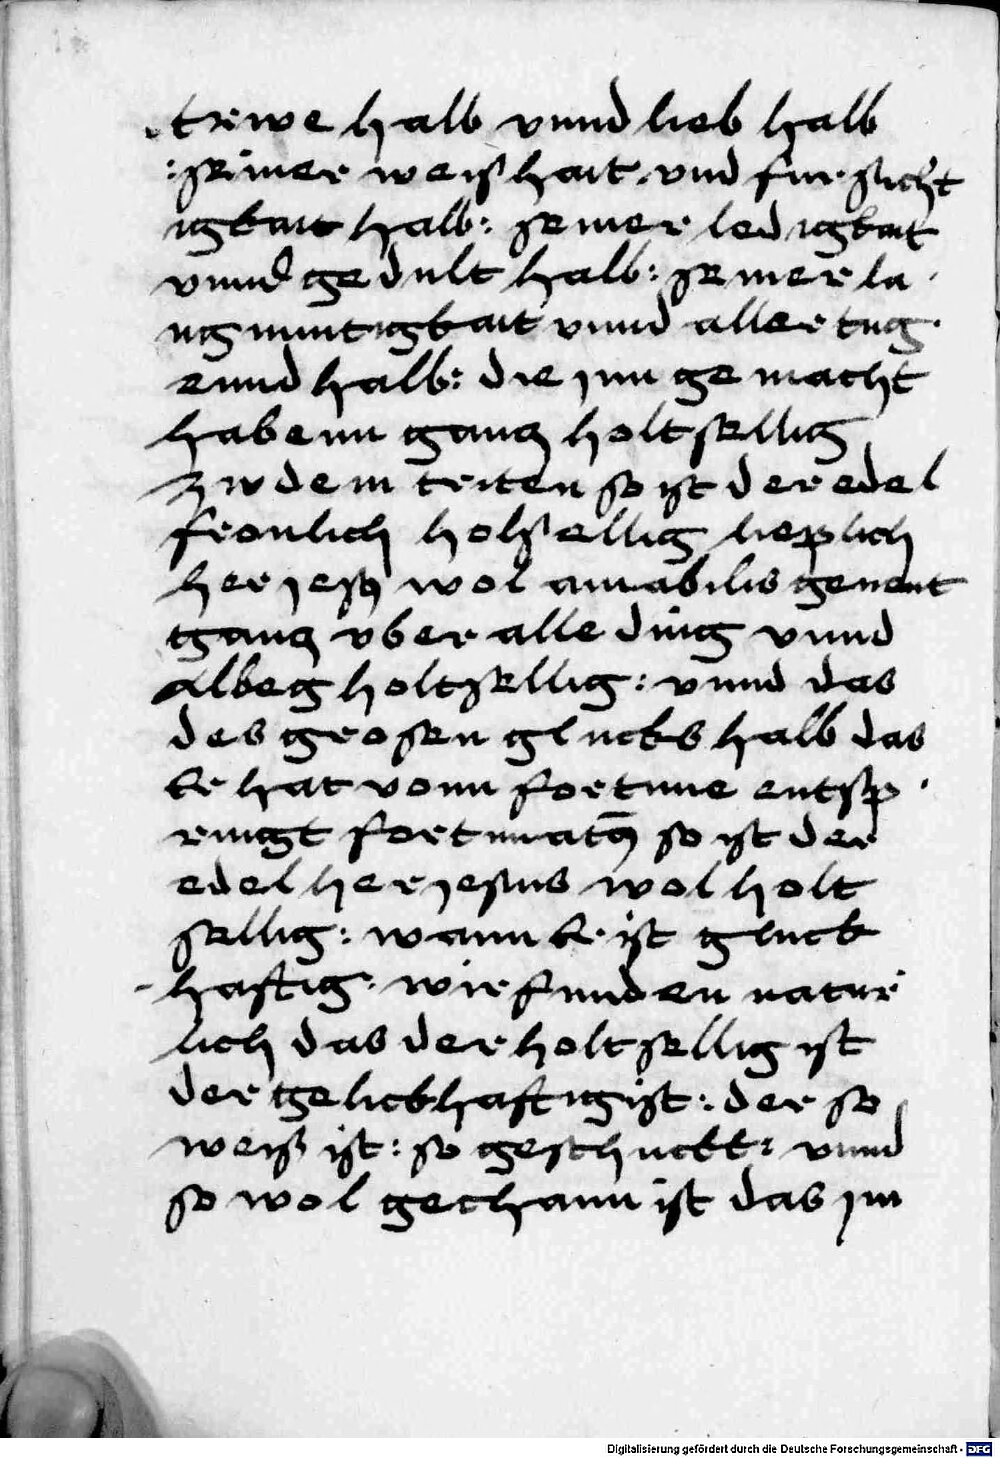 trewe halb vnnd lieb halb
: seiner weishait . vnd fursicht
igkait halb : seiner ledigkait
vnnd gedult halb : seiner la
ngmutigkait vnnd aller tug
ennd halb : die jnn gemacht
habenn gancz holtsellig
zw dem triten so ist der edel
fronlich holsellig lieplich
her jesus wol amabilis genent
gancz vber alle ding vnnd
albeg holtsellig : vnnd das
des grosen glucks halb das
er hat vonn fortune entsp
ringt fortunatus so ist der
edel her jesus wol holt
sellig : wann er ist gluck
haftig . wir funden natur
lich das der holtsellig ist
der gelickhaftig ist : der so
weiß ist : so geschuckt : vnnd
so wol gethann ist das jm
Digitalisierung gefördert durch die Deutsche Forschungsgemeinschaft - DFG